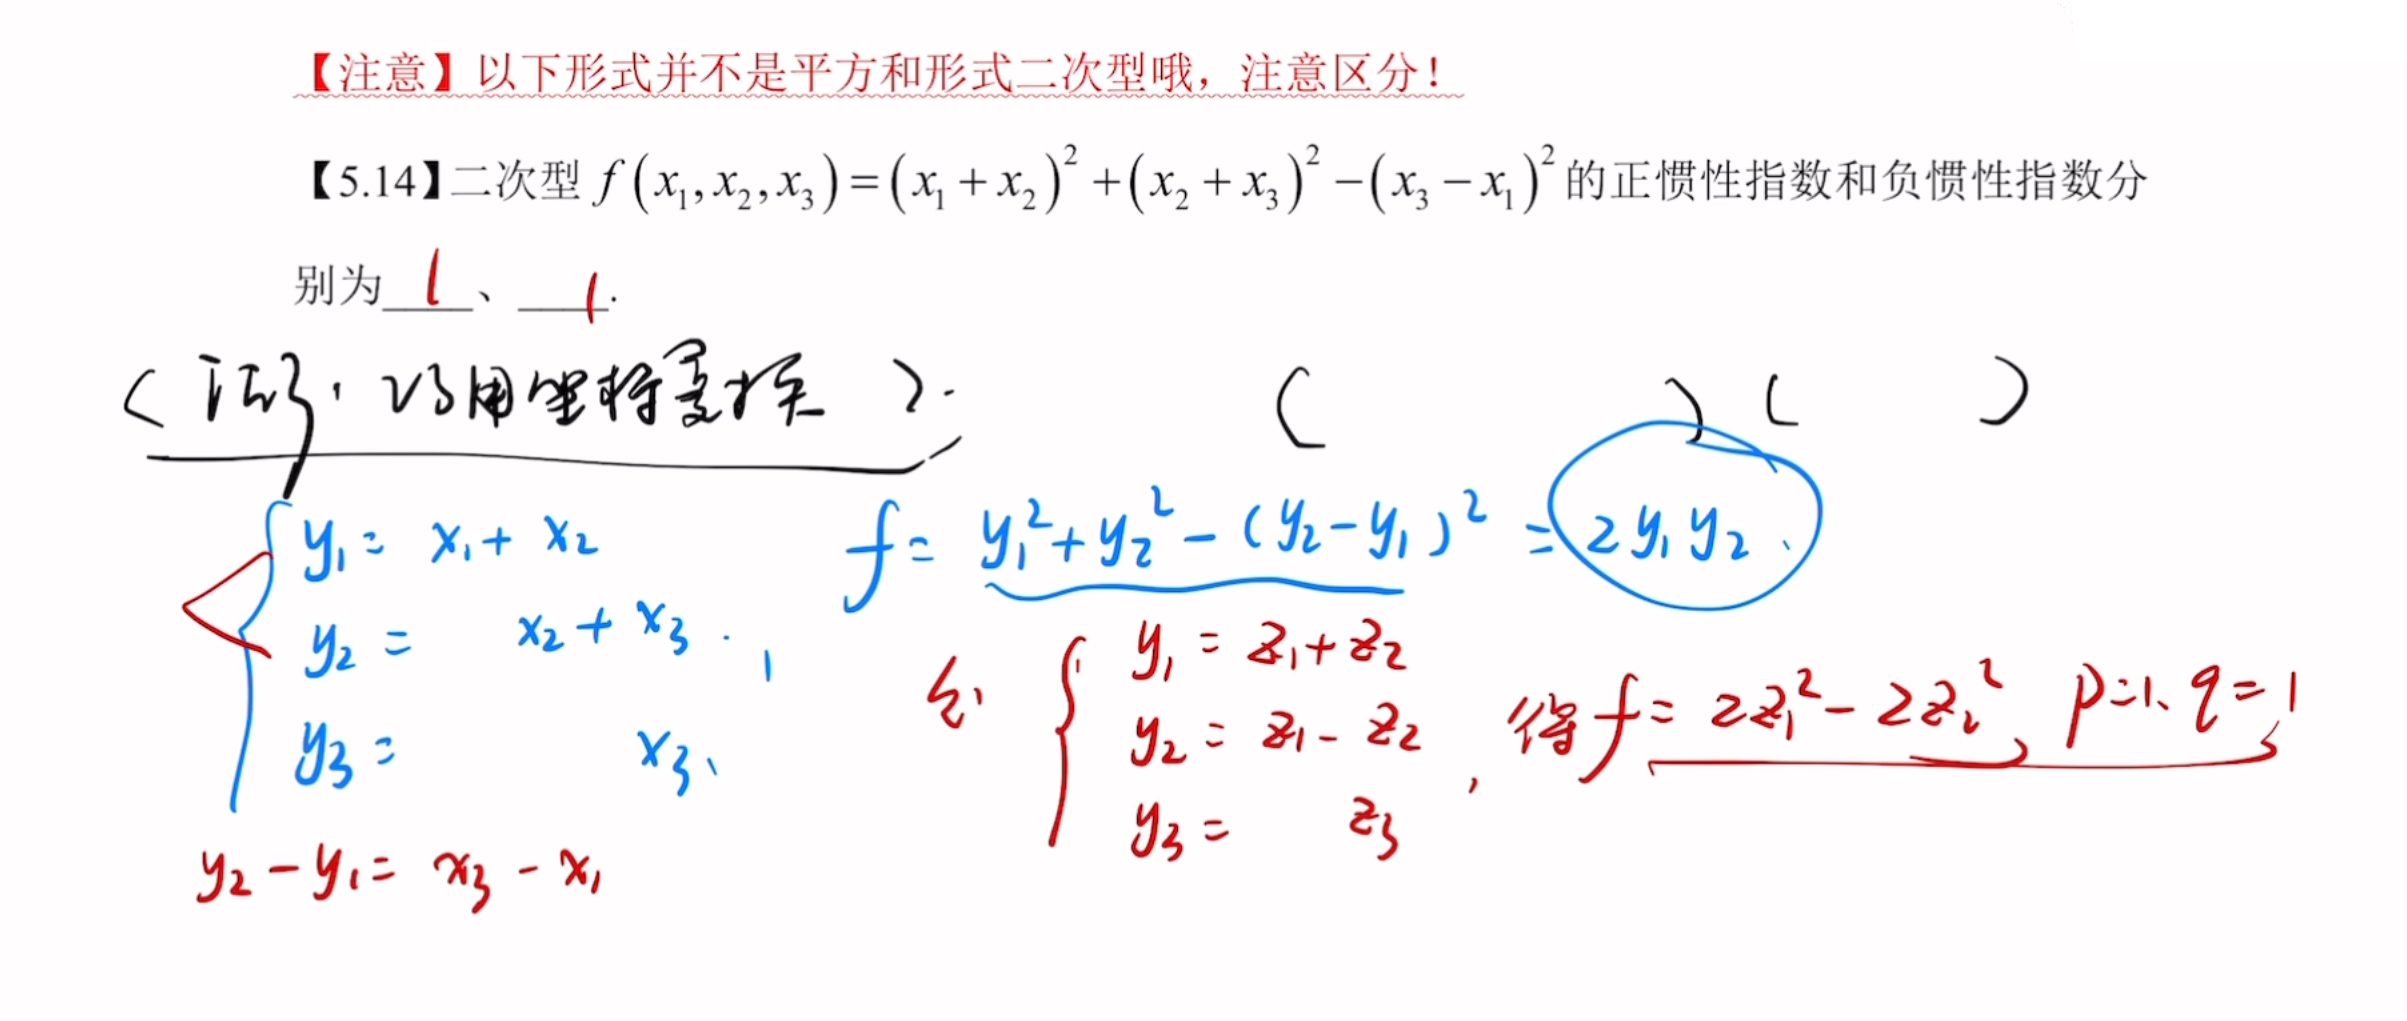 【注意】以下形式并不是平方和形式二次型哦，注意区分！
【5.14】二次型 f(x₁,x₂,x₃)=(x₁+x₂)²+(x₂+x₃)²−(x₃−x₁)² 的正惯性指数和负惯性指数分
别为 1 、 1 .
巧用坐标变换 ( ) ( )
y₁ = x₁ + x₂
y₂ = x₂ + x₃
y₃ = x₃
y₂ − y₁ = x₃ − x₁
f = y₁² + y₂² − (y₂ − y₁)² = 2y₁y₂
令 y₁ = z₁ + z₂
y₂ = z₁ − z₂
y₃ = z₃
, 得 f = 2z₁² − 2z₂², p=1、q=1